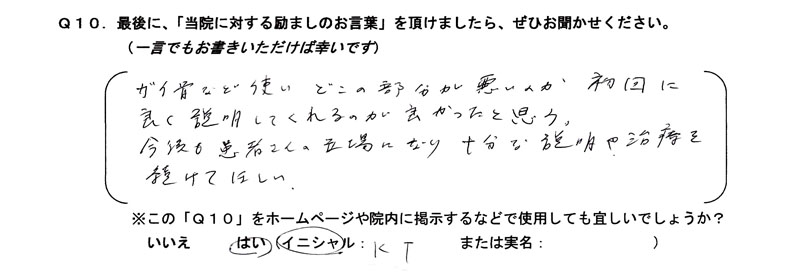 Q10．最後に、「当院に対する励ましのお言葉」を頂けましたら、ぜひお聞かせください。
（一言でもお書きいただけば幸いです）
ガイ骨など使い どこの部分が悪いんか 初回に
良く説明してくれるのが良かったと思う。
今後も患者さんの立場になり 十分な説明や治療を
続けてほしい。
※この「Q10」をホームページや院内に掲示するなどで使用しても宜しいでしょうか？
いいえ　　はい（イニシャル：KT　　または実名：　　　　　　）